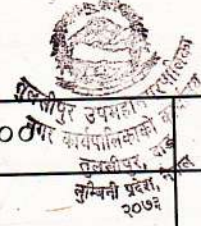 तुलसीपुर उपमहानगरपालिका
नगर कार्यपालिकाको
००
तुलसीपुर, दाङ
लुम्बिनी प्रदेश, नेपाल
२०७३